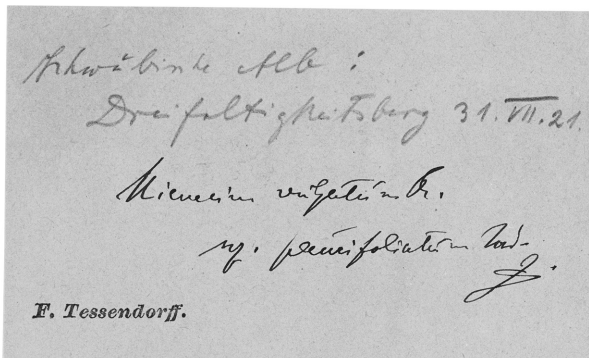 Schwäbische Alb:
Dreifaltigkeitsberg 31.VII.21.
Hieracium vulgatum Fr.
paucifoliatum
F. Tessendorff.